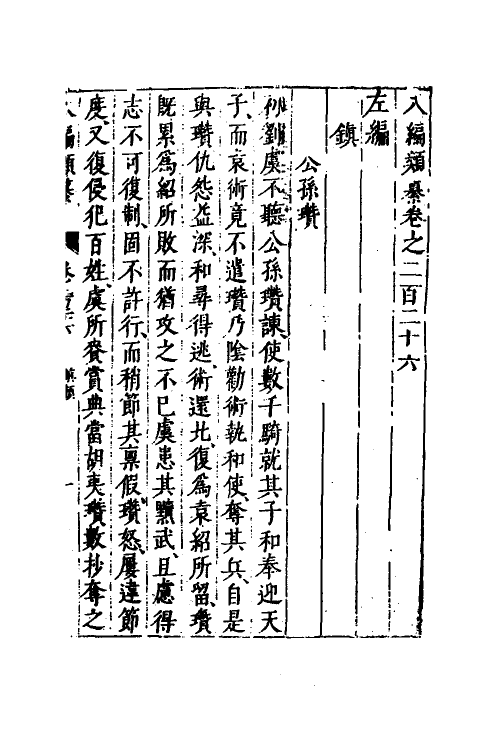 八編類纂卷之二百二十六
左編
鎮
公孫瓚
初劉虞不聽公孫瓚諫、使數千騎就其子和奉迎天
子、而袁術竟不遣、瓚乃陰勸術執和使奪其兵、自是
與瓚仇怨益深、和尋得逃術還北、復爲袁紹所留、瓚
既累爲紹所敗而猶攻之不已、虞患其黷武、且慮得
志不可復制、固不許行、而稍節其稟假、瓚怒、屢違節
度、又復侵犯百姓、虞所賚賞典當胡夷、瓚數抄奪之
八編類纂